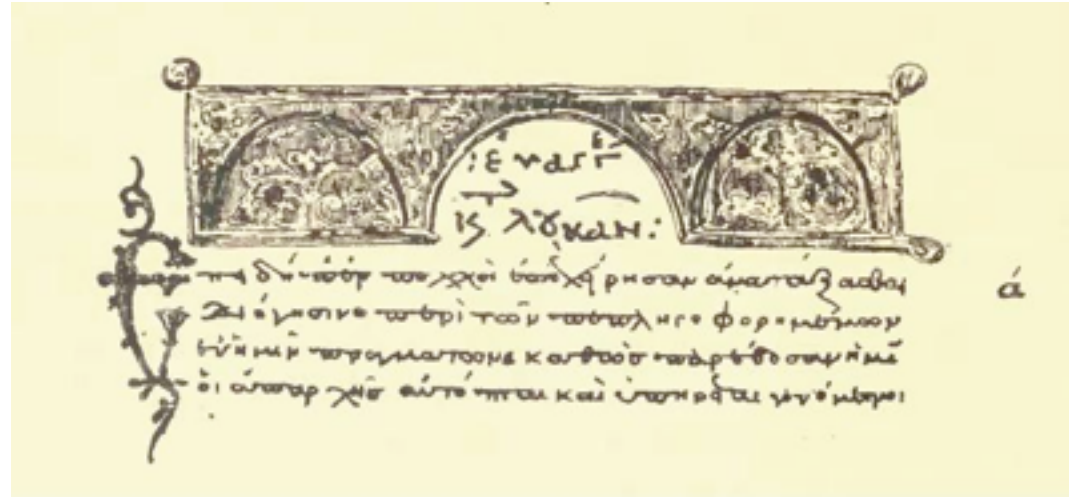 : ἐυαγγ
λȣκᾶν :
Ἐπειδήπερ πολλοὶ ἐπεχείρησαν ἀνατάξασθαι
ά
διήγησιν περὶ τῶν πεπληροφορημένων
ἐν ἡμῖν πραγμάτων καθὼς παρέδοσαν ἡμῖ
ὁι ἀπαρχῆς αὐτόπται καὶ ὑπηρέται γενόμενοι